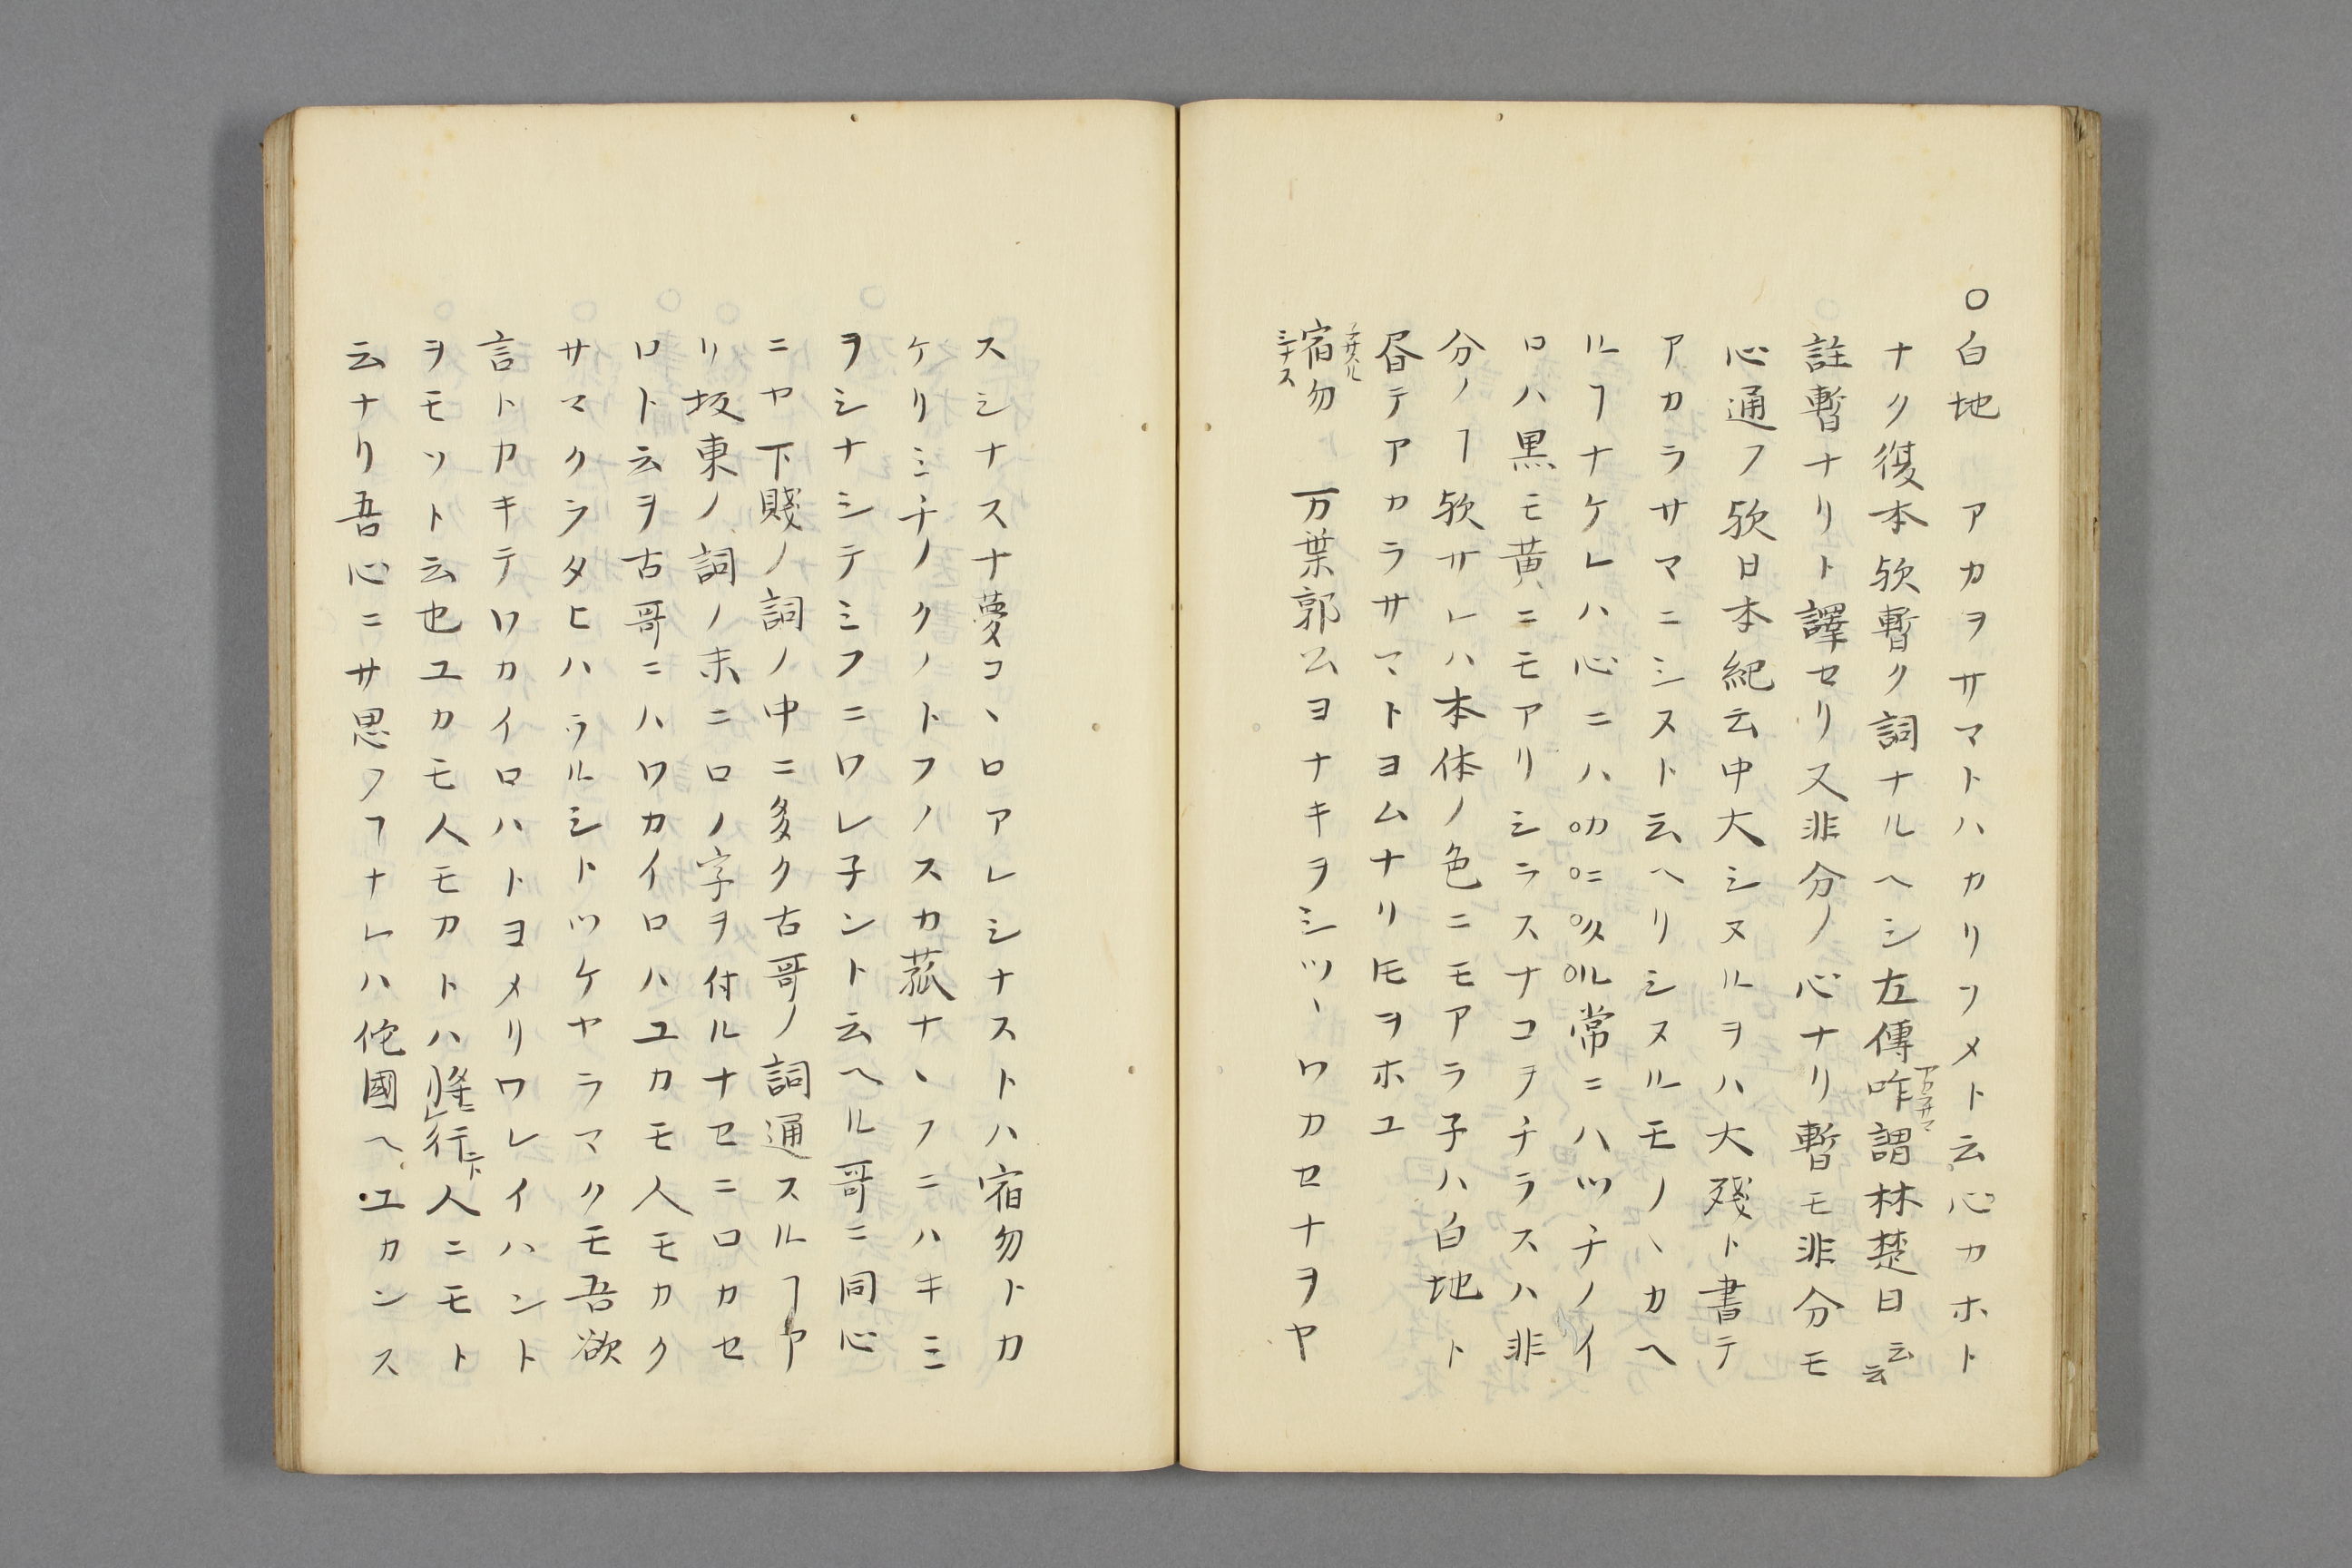 〇白地　アカヲサマトハカリソメト云心カホト
ナク復本歟暫ク詞ナルヘシ左傳咋謂林楚日云云
アカラサマ
註暫ナリト譯セリ又非分ノ心ナリ暫モ非分モ
心通フ歟日本紀云中大シヌルヲハ大殘ト書テ
アカラサマニシスト云ヘリシヌルモノヽカヘ
ルヿナケレハ心ニハ叻常ニハツチノイ
ロハ黒モ黄ニモアリシラスナコヲチラスハ非
分ノヿ歟サレハ本体ノ色ニモアラ子ハ白地ト
昼テアカラサマトヨムナリ𪜈ヲホユ
宿勿　万葉郭公ヨナキヲシツヽワカセナヲヤ
シナス
スシナスナ夢コヽロアレシナストハ宿勿トカ
ケリミチノクノトフノスカ菰ナヽフニハキミ
ヲシナシテミフニワレ子ント云ヘル哥ニ同心
ニヤ下賤ノ詞ノ中ニ多ク古哥ノ詞通スルヿヤ
リ坂東ノ詞ノ末ニロノ字ヲ付ルナセニロカセ
ロト云ヲ古哥ニハワカイロハユカモ人モカク
サマクラタヒハラルシトツケヤラマクモ吾欲
言トカキテワカイロハトヨメリワレイハント
ヲモソト云也ユカモ人モカトハ將ニレ行ント人ニモト
云ナリ吾心ニサ思フヿナレハ佗國ヘユカンス